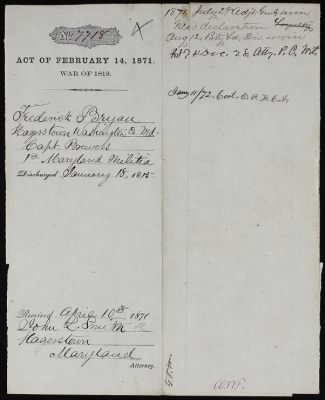 No. 7718
ACT OF FEBRUARY 14, 1871.
WAR OF 1812.
Frederick Bryan
Hagerstown Washington Co Md.
Capt Brewers
1st Maryland Militia
Discharged January 18, 1815.
Received April 10th 1871
John L. Smith
Hagerstown
Maryland
Attorney.
1871, July 29 Adjt Genl
New declaration
Aug 12,
Dec. & Atty. P.O. Not.
Jany 11/72